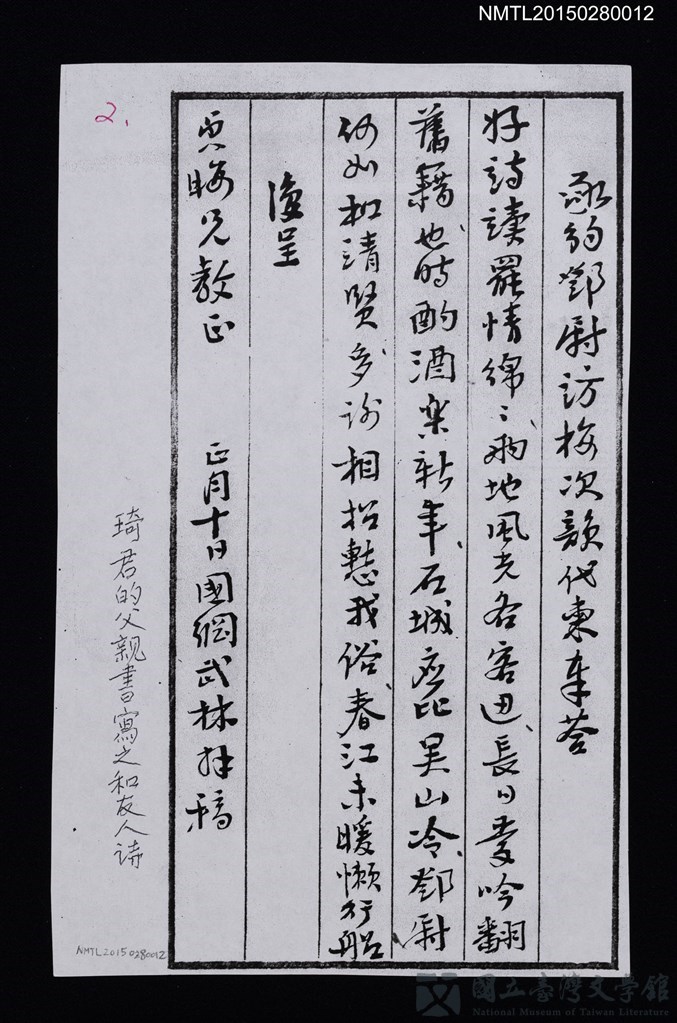 NMTL20150280012
2.
承約鄧尉訪梅次韻代柬奉答
好詩讀罷情綿〻兩地風光各客边長日愛吟翻
舊籍也時酌酒樂新年石城應比吴山冷鄧尉
何如和靖賢多謝相招慙我俗春江未暖懶行船
海呈
晦兄教正 正月十日國綱武林拜稿
琦君的父親書寫之和友人詩
NMTL20150280012
國立臺灣文學館
National Museum of Taiwan Literature